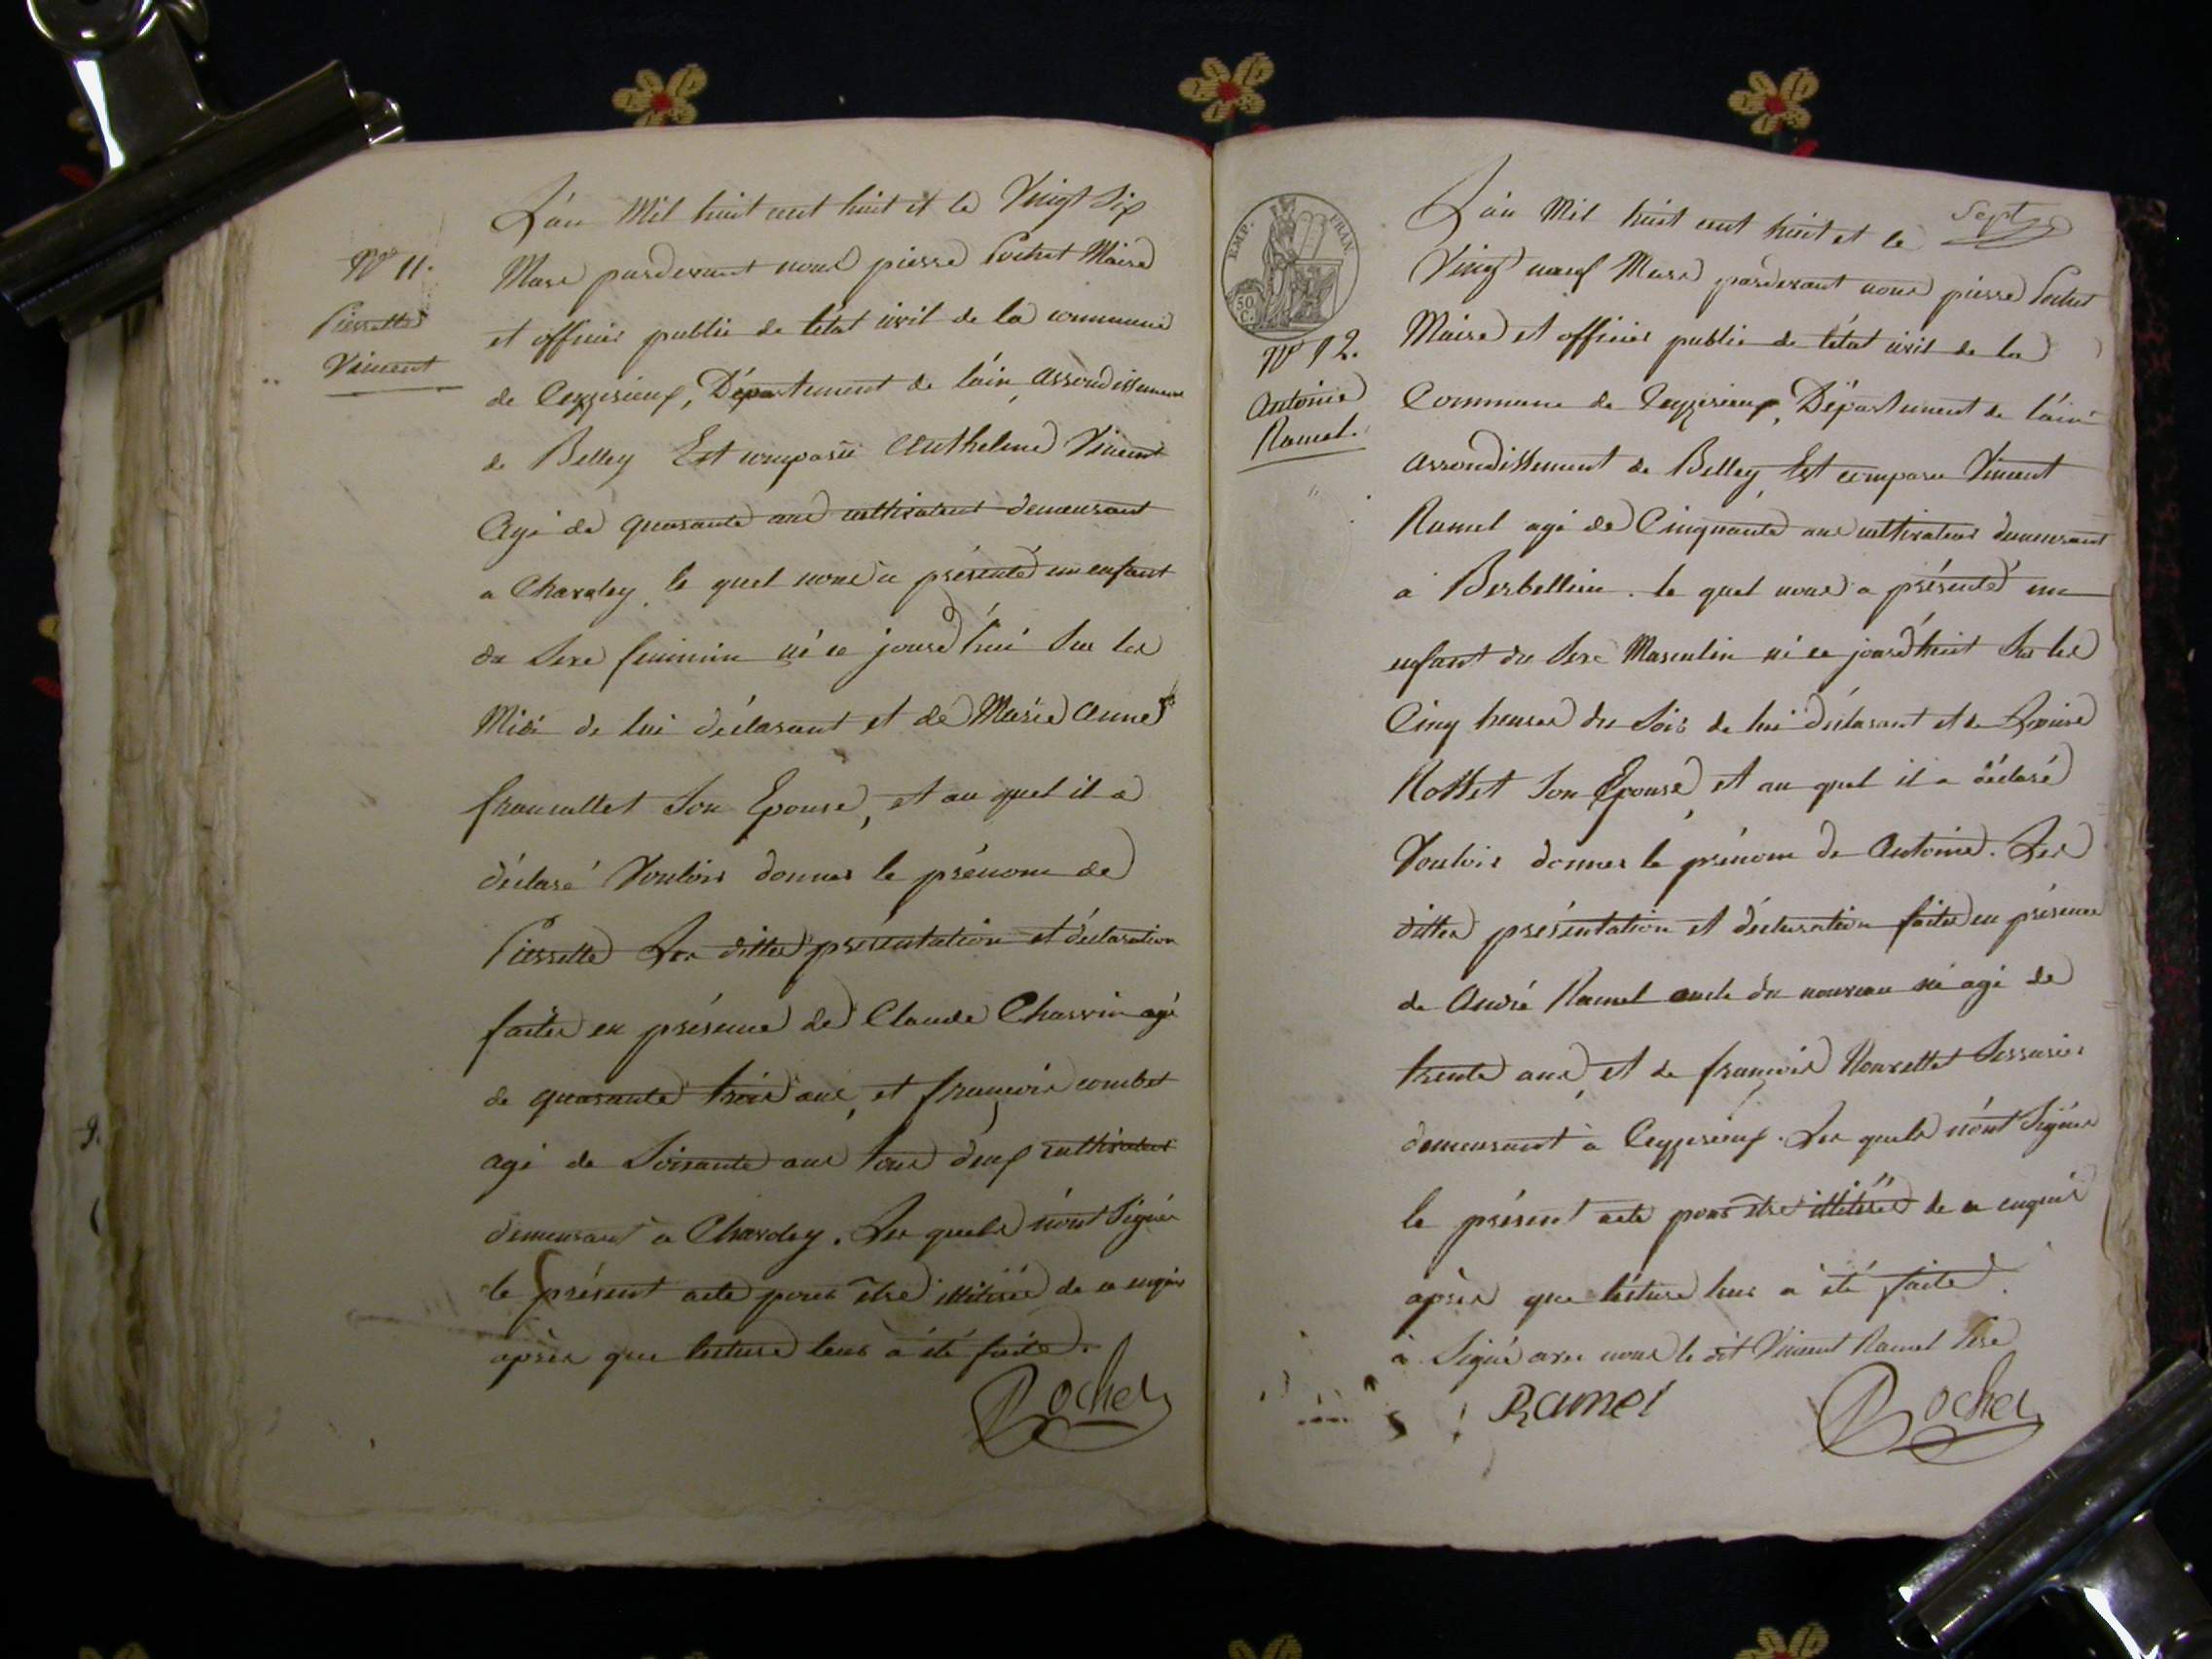 L'an Mil huit cent huit et le Vingt Six
Mars pardevant nous pierre Pochet Maire
et officier public de l'état civil de la commune
de Ceyzerieux, Département de l'ain, arrondissement
de Belley Est comparu Anthelme Vincent
Agé de quarante ans cultivateur demeurant
a Charoley, le quel nous a présenté un enfant
du Sexe feminin né ce jourd'hui Sur les
Midi de lui déclarant et de Marie Anne
francallet Son Epouse, et au quel il a
déclaré Vouloir donner le prénom de
Pierrette Les dittes présentation et déclaration
faites en présence de Claude Charvin agé
de quarante trois ans, et françois combet
agé de Soixante ans tous deux cultivateur
demeurant a Charoley. Les quels n'ont Signé
le présent acte pour être illitérés de ce enquis
après que lecture leur a été faite.
Nº 11.
Pierrette
Vincent
Sept
L'an Mil huit cent huit et le
Vingt neuf Mars pardevant nous pierre Pochet
Maire et officier public de l'état civil de la
Commune de Ceyzerieux, Département de l'ain
arrondissement de Belley Est comparu Vincent
Ramel agé de Cinquante ans cultivateur demeurant
à Berbellin. le quel nous a présenté un
enfant du Sexe Masculin né ce jourd'huit Sur les
Cinq heures du Soir de lui déclarant et de Louise
Son Epouse, et au quel il a déclaré
Vouloir donner le prénom de Antoine. Les
dittes présentation et déclaration faites en présence
de André Ramel oncle du nouveau né agé de
trente ans, et de françois Serrurier
demeurant à Ceyzerieux. Les quels n'ont Signés
le présent acte pour être illitérés de ce enquis
après que lecture leur a été faite.
à Signé avec nous le dit Vincent Ramel Père
Ramel
EMP. FRAN.
50 C.
Nº 12.
Antoine
Ramel.